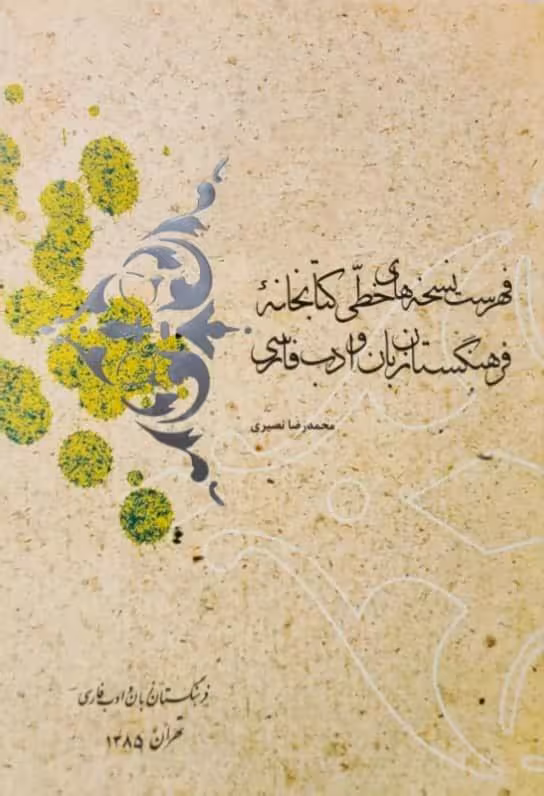 فهرست نسخه‌های خطّی کتابخانهٔ
فرهنگستان زبان و ادب فارسی
محمدرضا نصیری
فرهنگستان زبان و ادب فارسی
تهران ۱۳۸۵